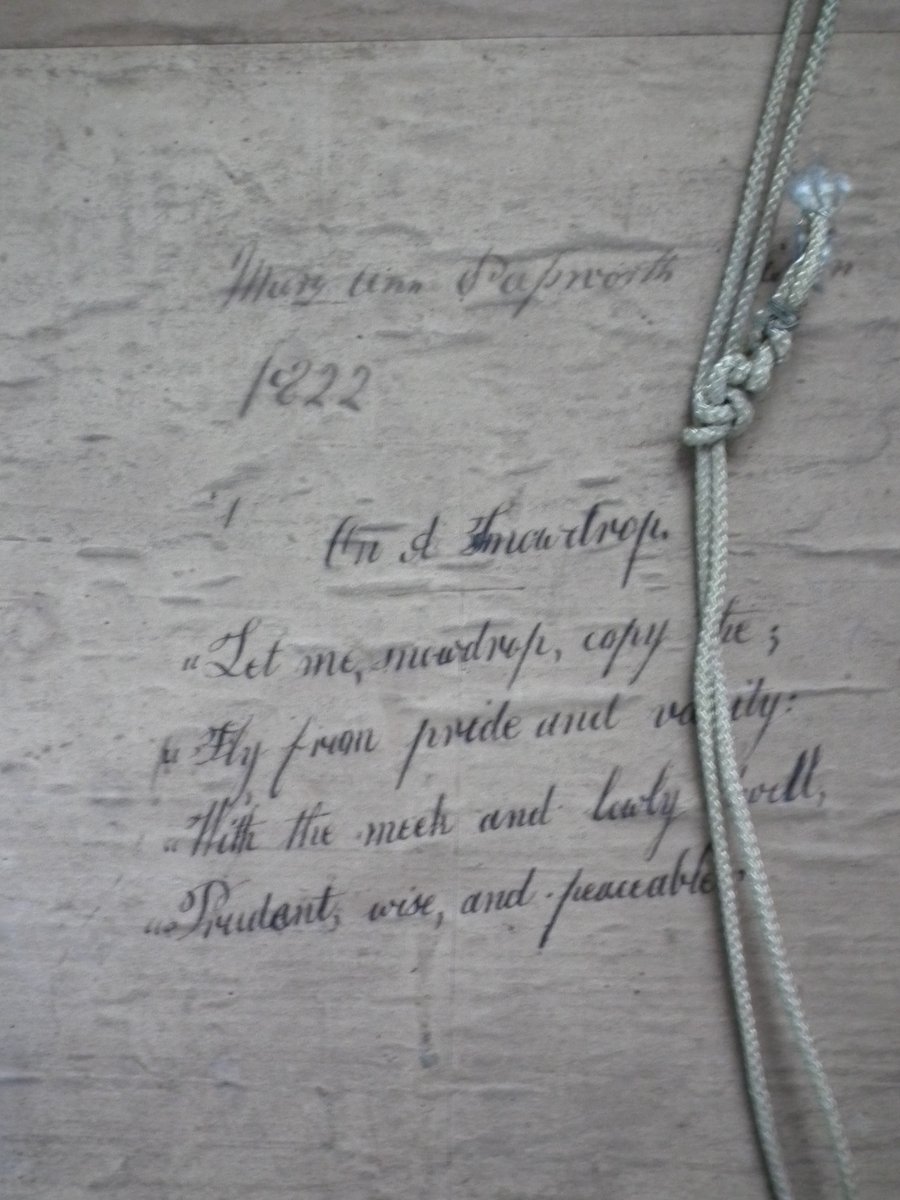 Mary Ann Papworth
1822
On A Snowdrop.
"Let me, snowdrop, copy the;
"Fly from pride and vanity:
"With the meek and lowly dwell,
"Prudent, wise, and peaceable.